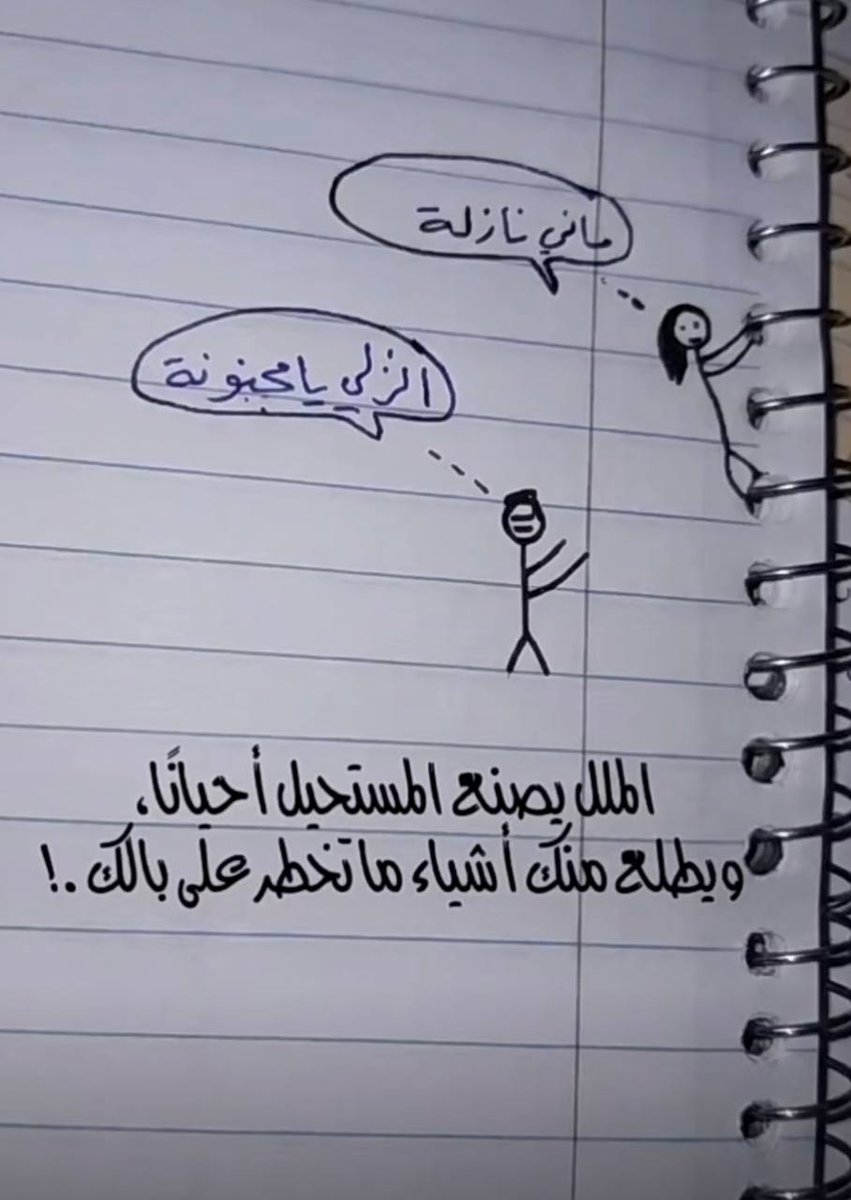 ماني نازلة
انزلي يا مجنونة
الملل يصنع المستحيل أحيانًا،
ويطلع منك أشياء ما تخطر على بالك .!